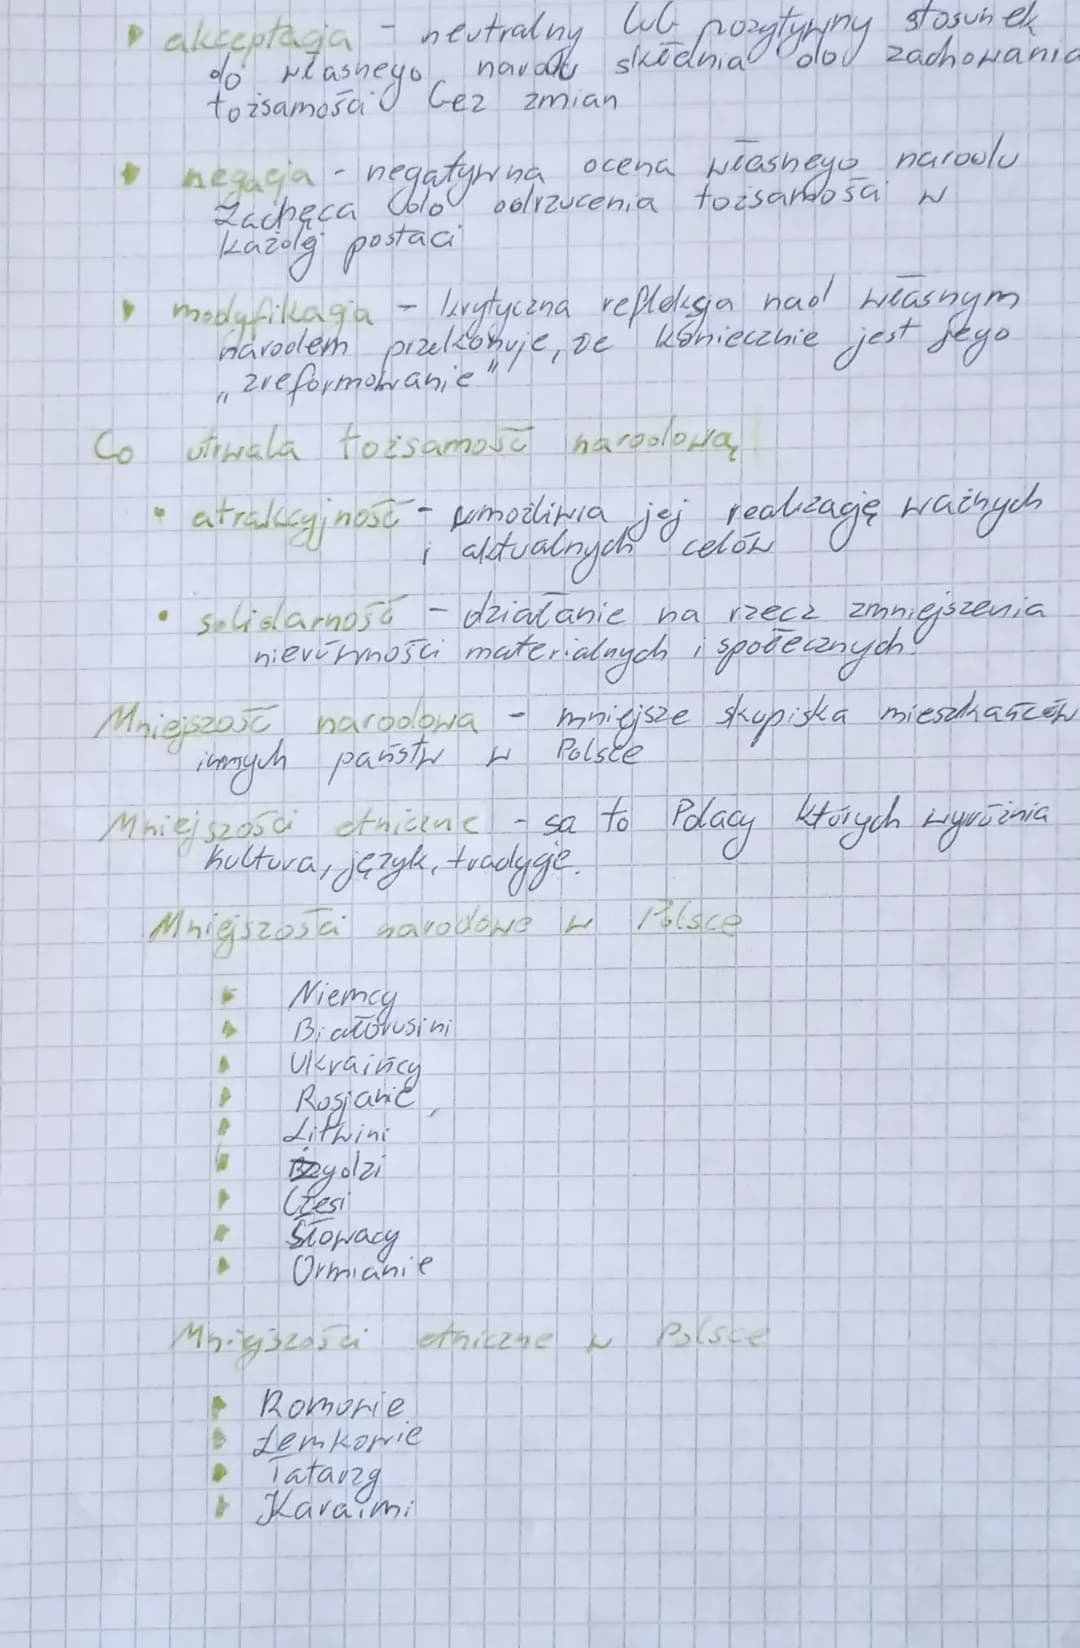 akceptacja - neutralny lub pozytywny stosunek
do własnego narodu skłania do zachowania
tożsamości bez zmian
negacja - negatywna ocena własnego narodu
zachęca do odrzucenia tożsamości w
każdej postaci
modyfikacja - krytyczna refleksja nad własnym
narodem przekonuje, że koniecznie jest jego
„zreformowanie"
Co utrwala tożsamość narodową
• atrakcyjność - umożliwia jej realizację ważnych
i aktualnych celów
• solidarność - działanie na rzecz zmniejszenia
nierówności materialnych i społecznych
Mniejszość narodowa - mniejsze skupiska mieszkańców
innych państw w Polsce
Mniejszości etniczne - są to Polacy których wyróżnia
kultura, język, tradycje.
Mniejszości narodowe w Polsce
Niemcy
Białorusini
Ukraińcy
Rosjanie
Litwini
Żydzi
Czesi
Słowacy
Ormianie
Mniejszości etniczne w Polsce
Romowie
Łemkowie
Tatarzy
Karaimi